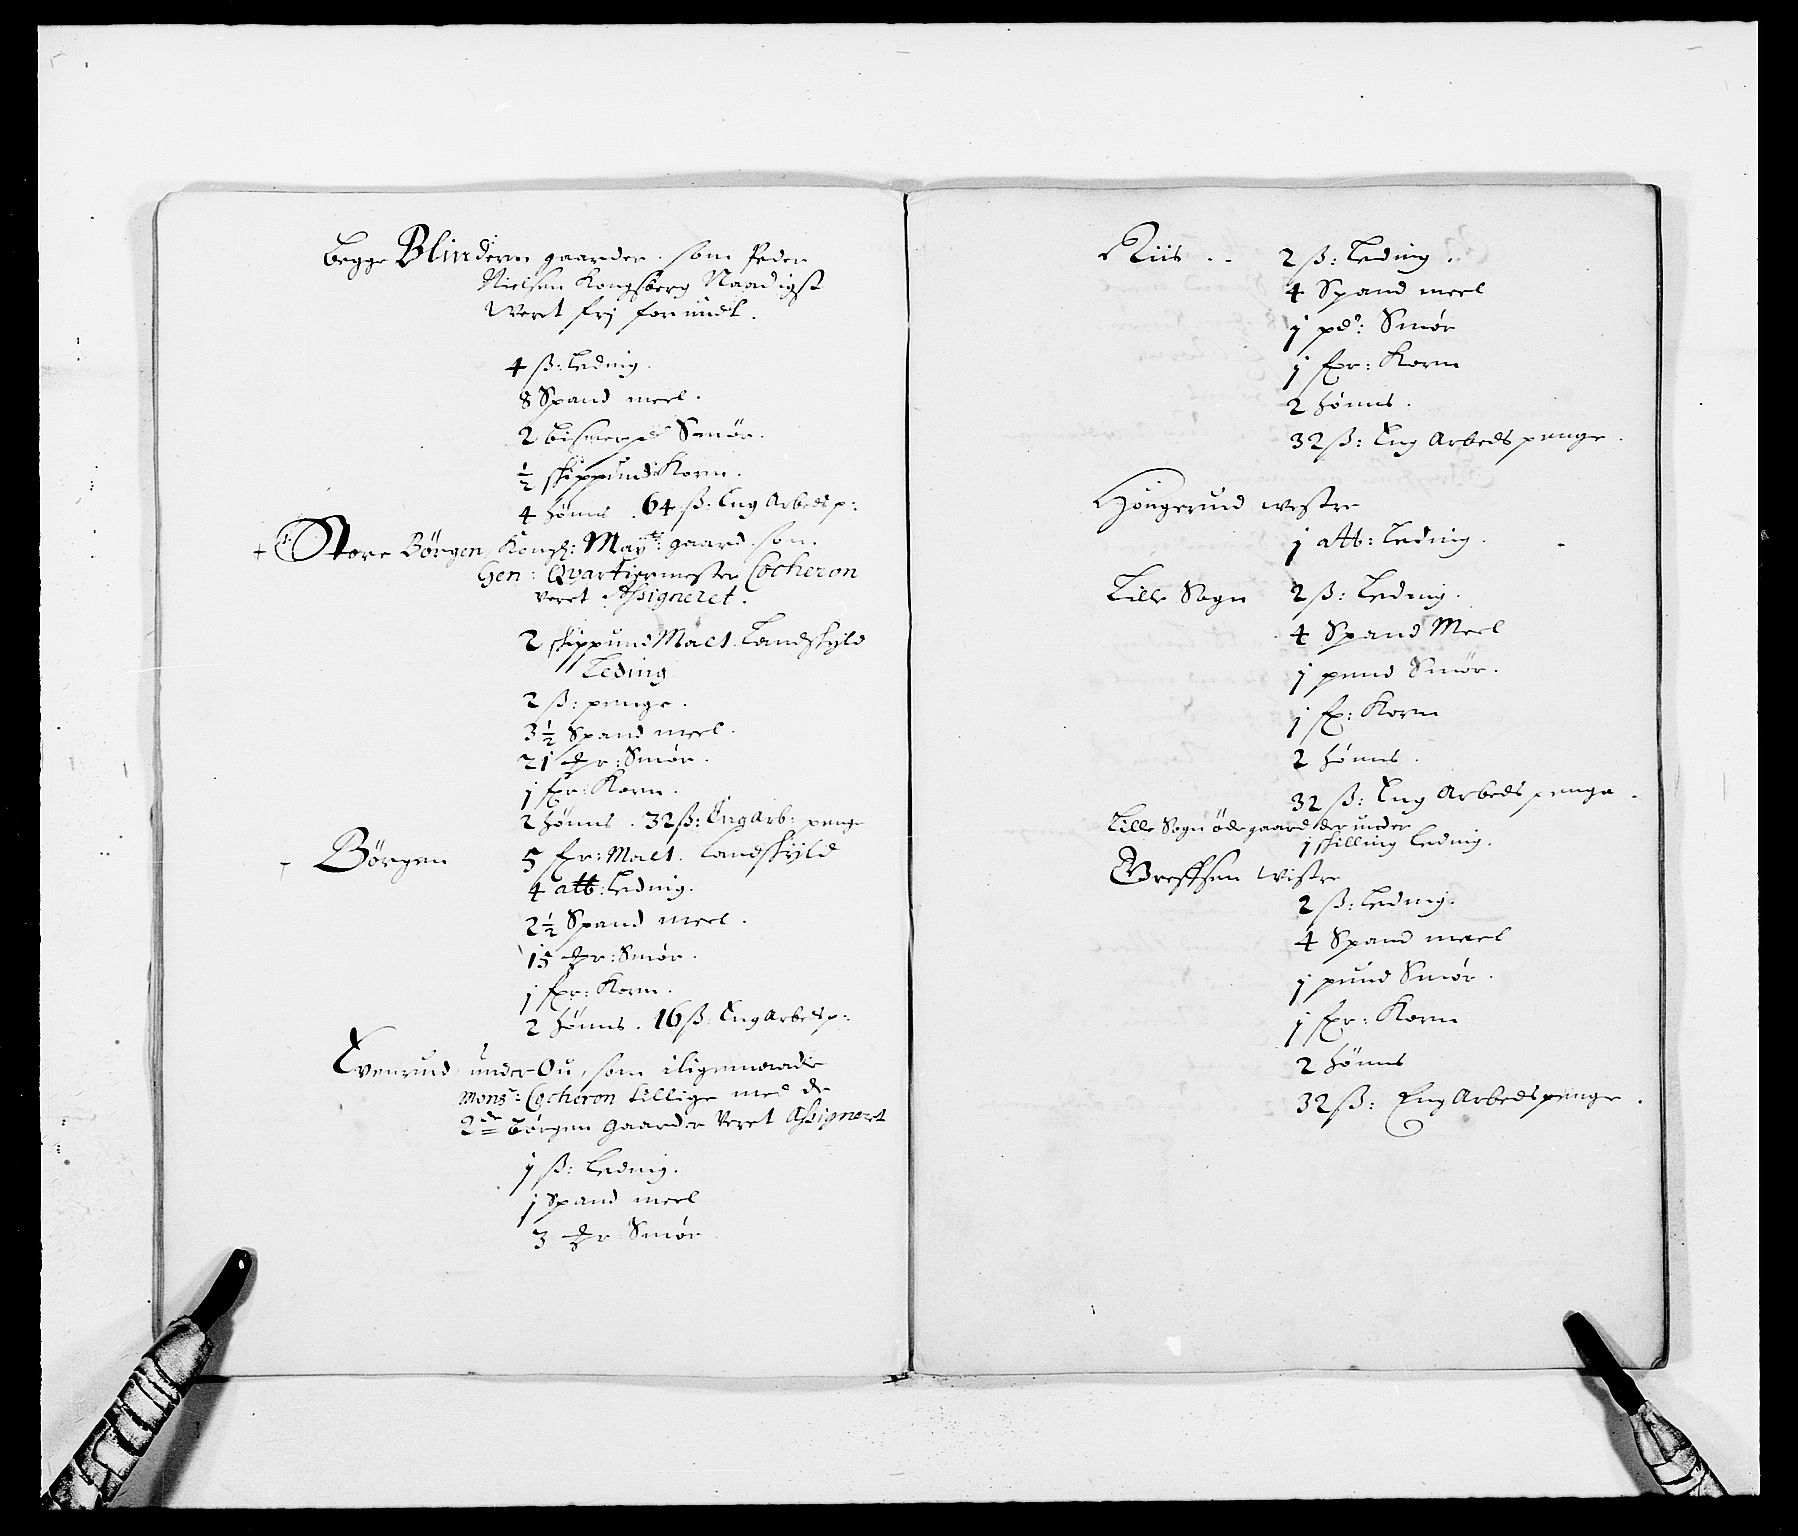 Begge Blindern gaarder. som Peder
Nielsen Kongsberg Naadigst
Veret frj forundt.
4 ß: Leding.
8 Spand meel.
2 bismerpd Smør.
½ skippund Korn.
4 hønns. 64 ß: Eng Arbeds p:
+ Store Børgen, Kongl: Maytz: gaard. som
Gen: Qvartiermester Cocheron
veret Assigneret.
2 skippund Malt. Landskyld
Leding
2 ß: penge.
3½ Spand meel.
21 mr: Smør.
1 fxr: Korn.
2 hønns. 32 ß: Eng Arb: penge
Børgen 5 fxr: Malt. Landskyld
4 att: Leding.
2½ Spand meel.
15 mr: Smør.
1 fxr: Korn.
2 hønns. 16 ß: Eng Arbeds p:
Evenrud under Ou, som iligemaade
Monsr: Cocheron tillige med de
2de Børgen Gaarder veret Assignert
1 ß: Leding.
1 Spand meel
3 mr Smør
Riis .. 2 ß: Leding.
4 Spand meel
1 pd: Smør
1 fxr: Korn
2 hønns.
32 ß: Eng Arbeds penge.
Hougerud westre
1 att: Leding.
Lille Sogn 2 ß: Leding.
4 Spand Meel
1 pund Smør.
1 fx: Korn
2 hønns.
32 ß: Eng Arbeds penge.
Lille Sogn ødegaard der under
1 skilling Leding.
Greffsen westre
2 ß: Leding.
4 Spand meel
1 pund Smør.
1 fxr: Korn
2 hønns
32 ß: Eng Arbeds penge.